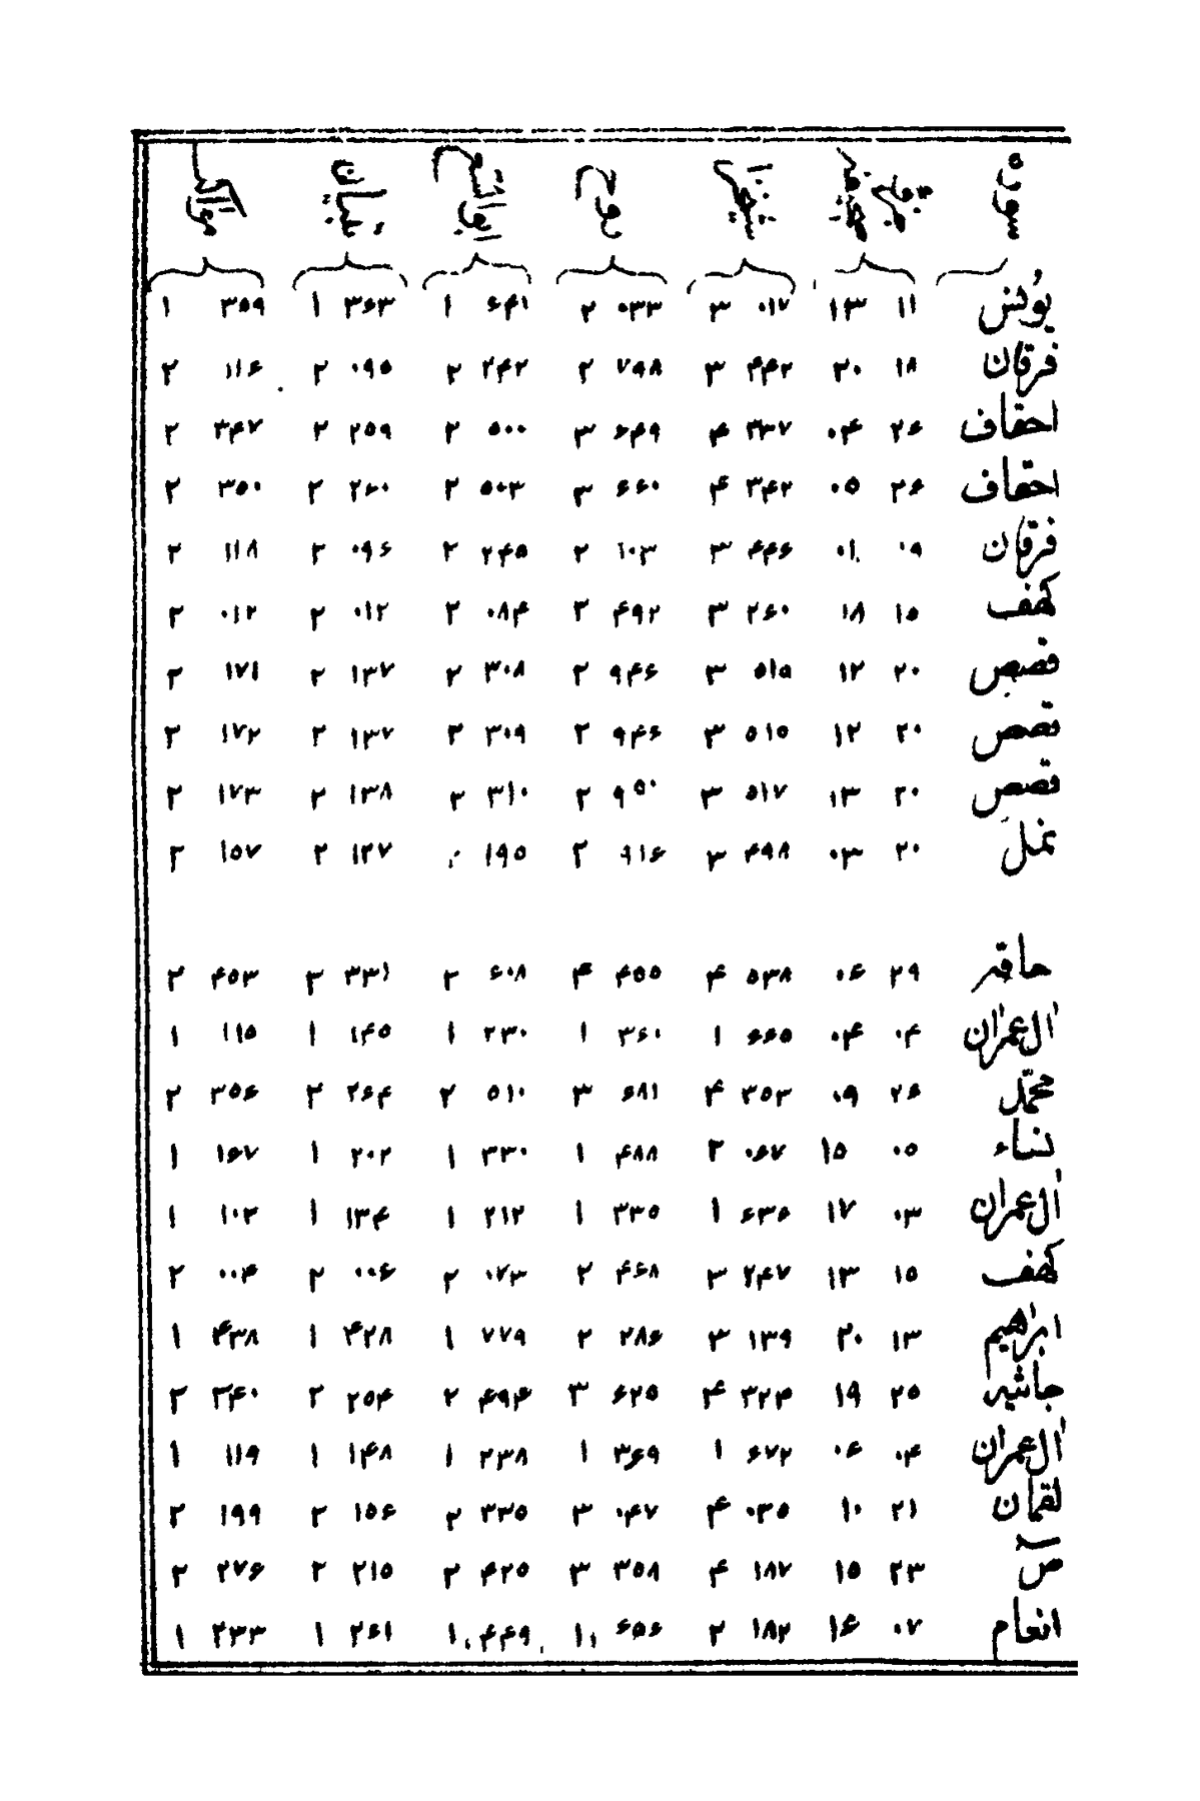 سوره جزو صفحه روح ابوالفتوح تبیان
یونس ۱۱ ۱۳ ۰۱۷ ۳ ۰۳۳ ۲ ۶۴۱ ۱ ۳۶۳ ۱ ۳۵۹ ۱
فرقان ۱۸ ۲۰ ۴۴۲ ۳ ۷۹۸ ۲ ۲۴۲ ۲ ۰۹۵ ۲ ۱۱۶ ۲
احقاف ۲۶ ۰۴ ۳۳۷ ۴ ۶۴۹ ۳ ۵۰۰ ۲ ۲۵۹ ۲ ۳۴۷ ۲
احقاف ۲۶ ۰۵ ۳۴۲ ۴ ۶۶۰ ۳ ۵۰۳ ۲ ۲۶۰ ۲ ۳۵۰ ۲
فرقان ۰۹ ۰۱ ۴۴۶ ۳ ۱۰۳ ۲ ۲۴۵ ۲ ۰۹۶ ۲ ۱۱۸ ۲
کهف ۱۵ ۱۸ ۲۶۰ ۳ ۴۹۲ ۲ ۰۸۴ ۲ ۰۱۲ ۲ ۰۱۲ ۲
قصص ۲۰ ۱۲ ۵۱۵ ۳ ۹۴۶ ۲ ۳۰۸ ۲ ۱۳۷ ۲ ۱۷۱ ۲
قصص ۲۰ ۱۲ ۵۱۵ ۳ ۹۴۶ ۲ ۳۰۹ ۲ ۱۳۷ ۲ ۱۷۲ ۲
قصص ۲۰ ۱۳ ۵۱۷ ۳ ۹۵۰ ۲ ۳۱۰ ۲ ۱۳۸ ۲ ۱۷۳ ۲
نمل ۲۰ ۰۳ ۴۹۸ ۳ ۹۱۶ ۲ ۱۹۵ ۱۲۷ ۲ ۱۵۷ ۲
حاقه ۲۹ ۰۶ ۵۳۸ ۴ ۴۵۵ ۴ ۶۰۸ ۲ ۳۳۱ ۲ ۴۵۳ ۲
ال عمران ۰۴ ۰۴ ۶۶۵ ۱ ۳۶۰ ۱ ۲۳۰ ۱ ۱۴۵ ۱ ۱۱۵ ۱
محمّد ۲۶ ۰۹ ۳۵۳ ۴ ۶۸۱ ۳ ۵۱۰ ۲ ۲۶۴ ۲ ۳۵۶ ۲
نساء ۰۵ ۱۵ ۰۶۷ ۲ ۴۸۸ ۱ ۳۳۰ ۱ ۲۰۲ ۱ ۱۶۷ ۱
ال عمران ۰۳ ۱۷ ۶۳۵ ۱ ۳۳۵ ۱ ۲۱۲ ۱ ۱۳۴ ۱ ۱۰۳ ۱
کهف ۱۵ ۱۳ ۲۴۷ ۳ ۴۶۸ ۲ ۰۷۳ ۲ ۰۰۶ ۲ ۰۰۴ ۲
ابراهیم ۱۳ ۲۰ ۱۳۹ ۳ ۲۸۶ ۲ ۷۷۹ ۱ ۴۲۸ ۱ ۴۳۸ ۱
جاثیه ۲۵ ۱۹ ۳۲۴ ۴ ۶۲۵ ۳ ۴۹۴ ۲ ۲۵۴ ۲ ۳۴۰ ۲
ال عمران ۰۴ ۰۶ ۶۷۲ ۱ ۳۶۹ ۱ ۲۳۸ ۱ ۱۴۸ ۱ ۱۱۹ ۱
لقمان ۲۱ ۱۰ ۰۳۵ ۴ ۰۴۷ ۳ ۳۳۵ ۲ ۱۵۶ ۲ ۱۹۹ ۲
صٓ ۲۳ ۱۵ ۱۸۷ ۴ ۳۵۸ ۳ ۴۲۵ ۲ ۲۱۵ ۲ ۲۷۶ ۲
انعام ۰۷ ۱۶ ۱۸۲ ۲ ۶۵۶ ۱ ۴۴۹ ۱ ۲۶۱ ۱ ۲۳۳ ۱